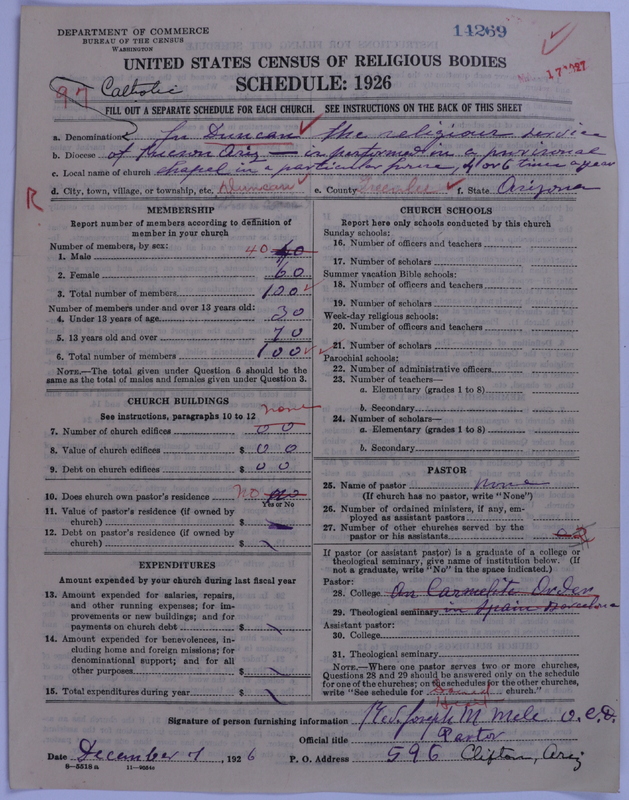 DEPARTMENT OF COMMERCE
BUREAU OF THE CENSUS
WASHINGTON
14269
UNITED STATES CENSUS OF RELIGIOUS BODIES
SCHEDULE: 1926
97 Catholic
FILL OUT A SEPARATE SCHEDULE FOR EACH CHURCH. SEE INSTRUCTIONS ON THE BACK OF THIS SHEET
a. Denomination In Duncan the religious service
b. Diocese of Tucson Ariz — is performed in a provisional
c. Local name of church chapel in a particular home, 4 or 6 times a year
R
d. City, town, village, or township, etc. Duncan e. County Greenlee f. State Arizona
MEMBERSHIP
Report number of members according to definition of member in your church
Number of members, by sex:
1. Male 40
2. Female 60
3. Total number of members 100
Number of members under and over 13 years old:
4. Under 13 years of age 30
5. 13 years old and over 70
6. Total number of members 100
NOTE.—The total given under Question 6 should be the same as the total of males and females given under Question 3.
CHURCH BUILDINGS
See instructions, paragraphs 10 to 12 none
7. Number of church edifices 0 0
8. Value of church edifices $ 0 0
9. Debt on church edifices $ 0 0
10. Does church own pastor's residence No no
Yes or No
11. Value of pastor's residence (if owned by church) $
12. Debt on pastor's residence (if owned by church) $
EXPENDITURES
Amount expended by your church during last fiscal year
13. Amount expended for salaries, repairs, and other running expenses; for improvements or new buildings; and for payments on church debt $
14. Amount expended for benevolences, including home and foreign missions; for denominational support; and for all other purposes $
15. Total expenditures during year $
CHURCH SCHOOLS
Report here only schools conducted by this church
Sunday schools:
16. Number of officers and teachers
17. Number of scholars
Summer vacation Bible schools:
18. Number of officers and teachers
19. Number of scholars
Week-day religious schools:
20. Number of officers and teachers
21. Number of scholars
Parochial schools:
22. Number of administrative officers
23. Number of teachers—
a. Elementary (grades 1 to 8)
b. Secondary
24. Number of scholars—
a. Elementary (grades 1 to 8)
b. Secondary
PASTOR
25. Name of pastor none
(If church has no pastor, write "None")
26. Number of ordained ministers, if any, employed as assistant pastors
27. Number of other churches served by the pastor or his assistants
If pastor (or assistant pastor) is a graduate of a college or theological seminary, give name of institution below. (If not a graduate, write "No" in the space indicated.)
Pastor:
28. College On Carmelite Order
29. Theological seminary in Spain Barcelona
Assistant pastor:
30. College
31. Theological seminary
NOTE.—Where one pastor serves two or more churches, Questions 28 and 29 should be answered only on the schedule for one of the churches; on the schedules for the other churches, write "See schedule for church."
Signature of person furnishing information Rev. Joseph M. Mele O.C.D.
Official title Pastor
Date December 7, 1926 P. O. Address 596 Clifton, Ariz
8—5518a 11—9284a